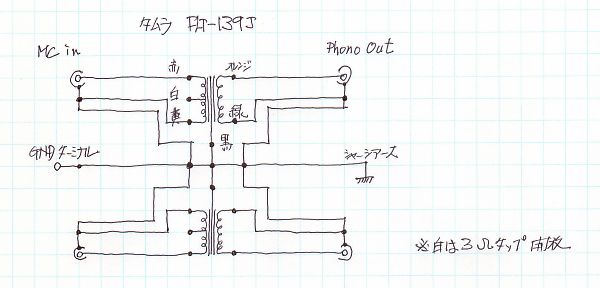 タムラ
MC in
Phono Out
赤
オレンジ
白
黄
緑
黒
GNDターミナル
シャーシアース
※白は3Ωタップ 開放